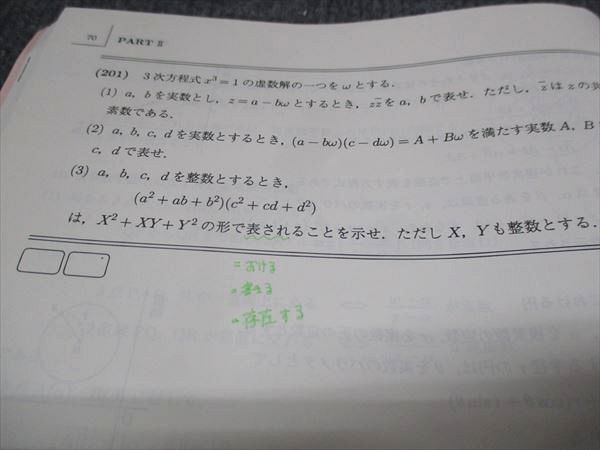 70 PART II
(201) 3次方程式 x³=1 の虚数解の一つを ω とする.
(1) a, b を実数とし, z=a−bω とするとき, zz̄ を a, b で表せ. ただし, z̄ は z の共
素数である.
(2) a, b, c, d を実数とするとき, (a−bω)(c−dω)=A+Bω を満たす実数 A, B
c, d で表せ.
(3) a, b, c, d を整数とするとき,
(a²+ab+b²)(c²+cd+d²)
は, X²+XY+Y² の形で表されることを示せ. ただし X, Y も整数とする.
=おける
=書ける
=存在する